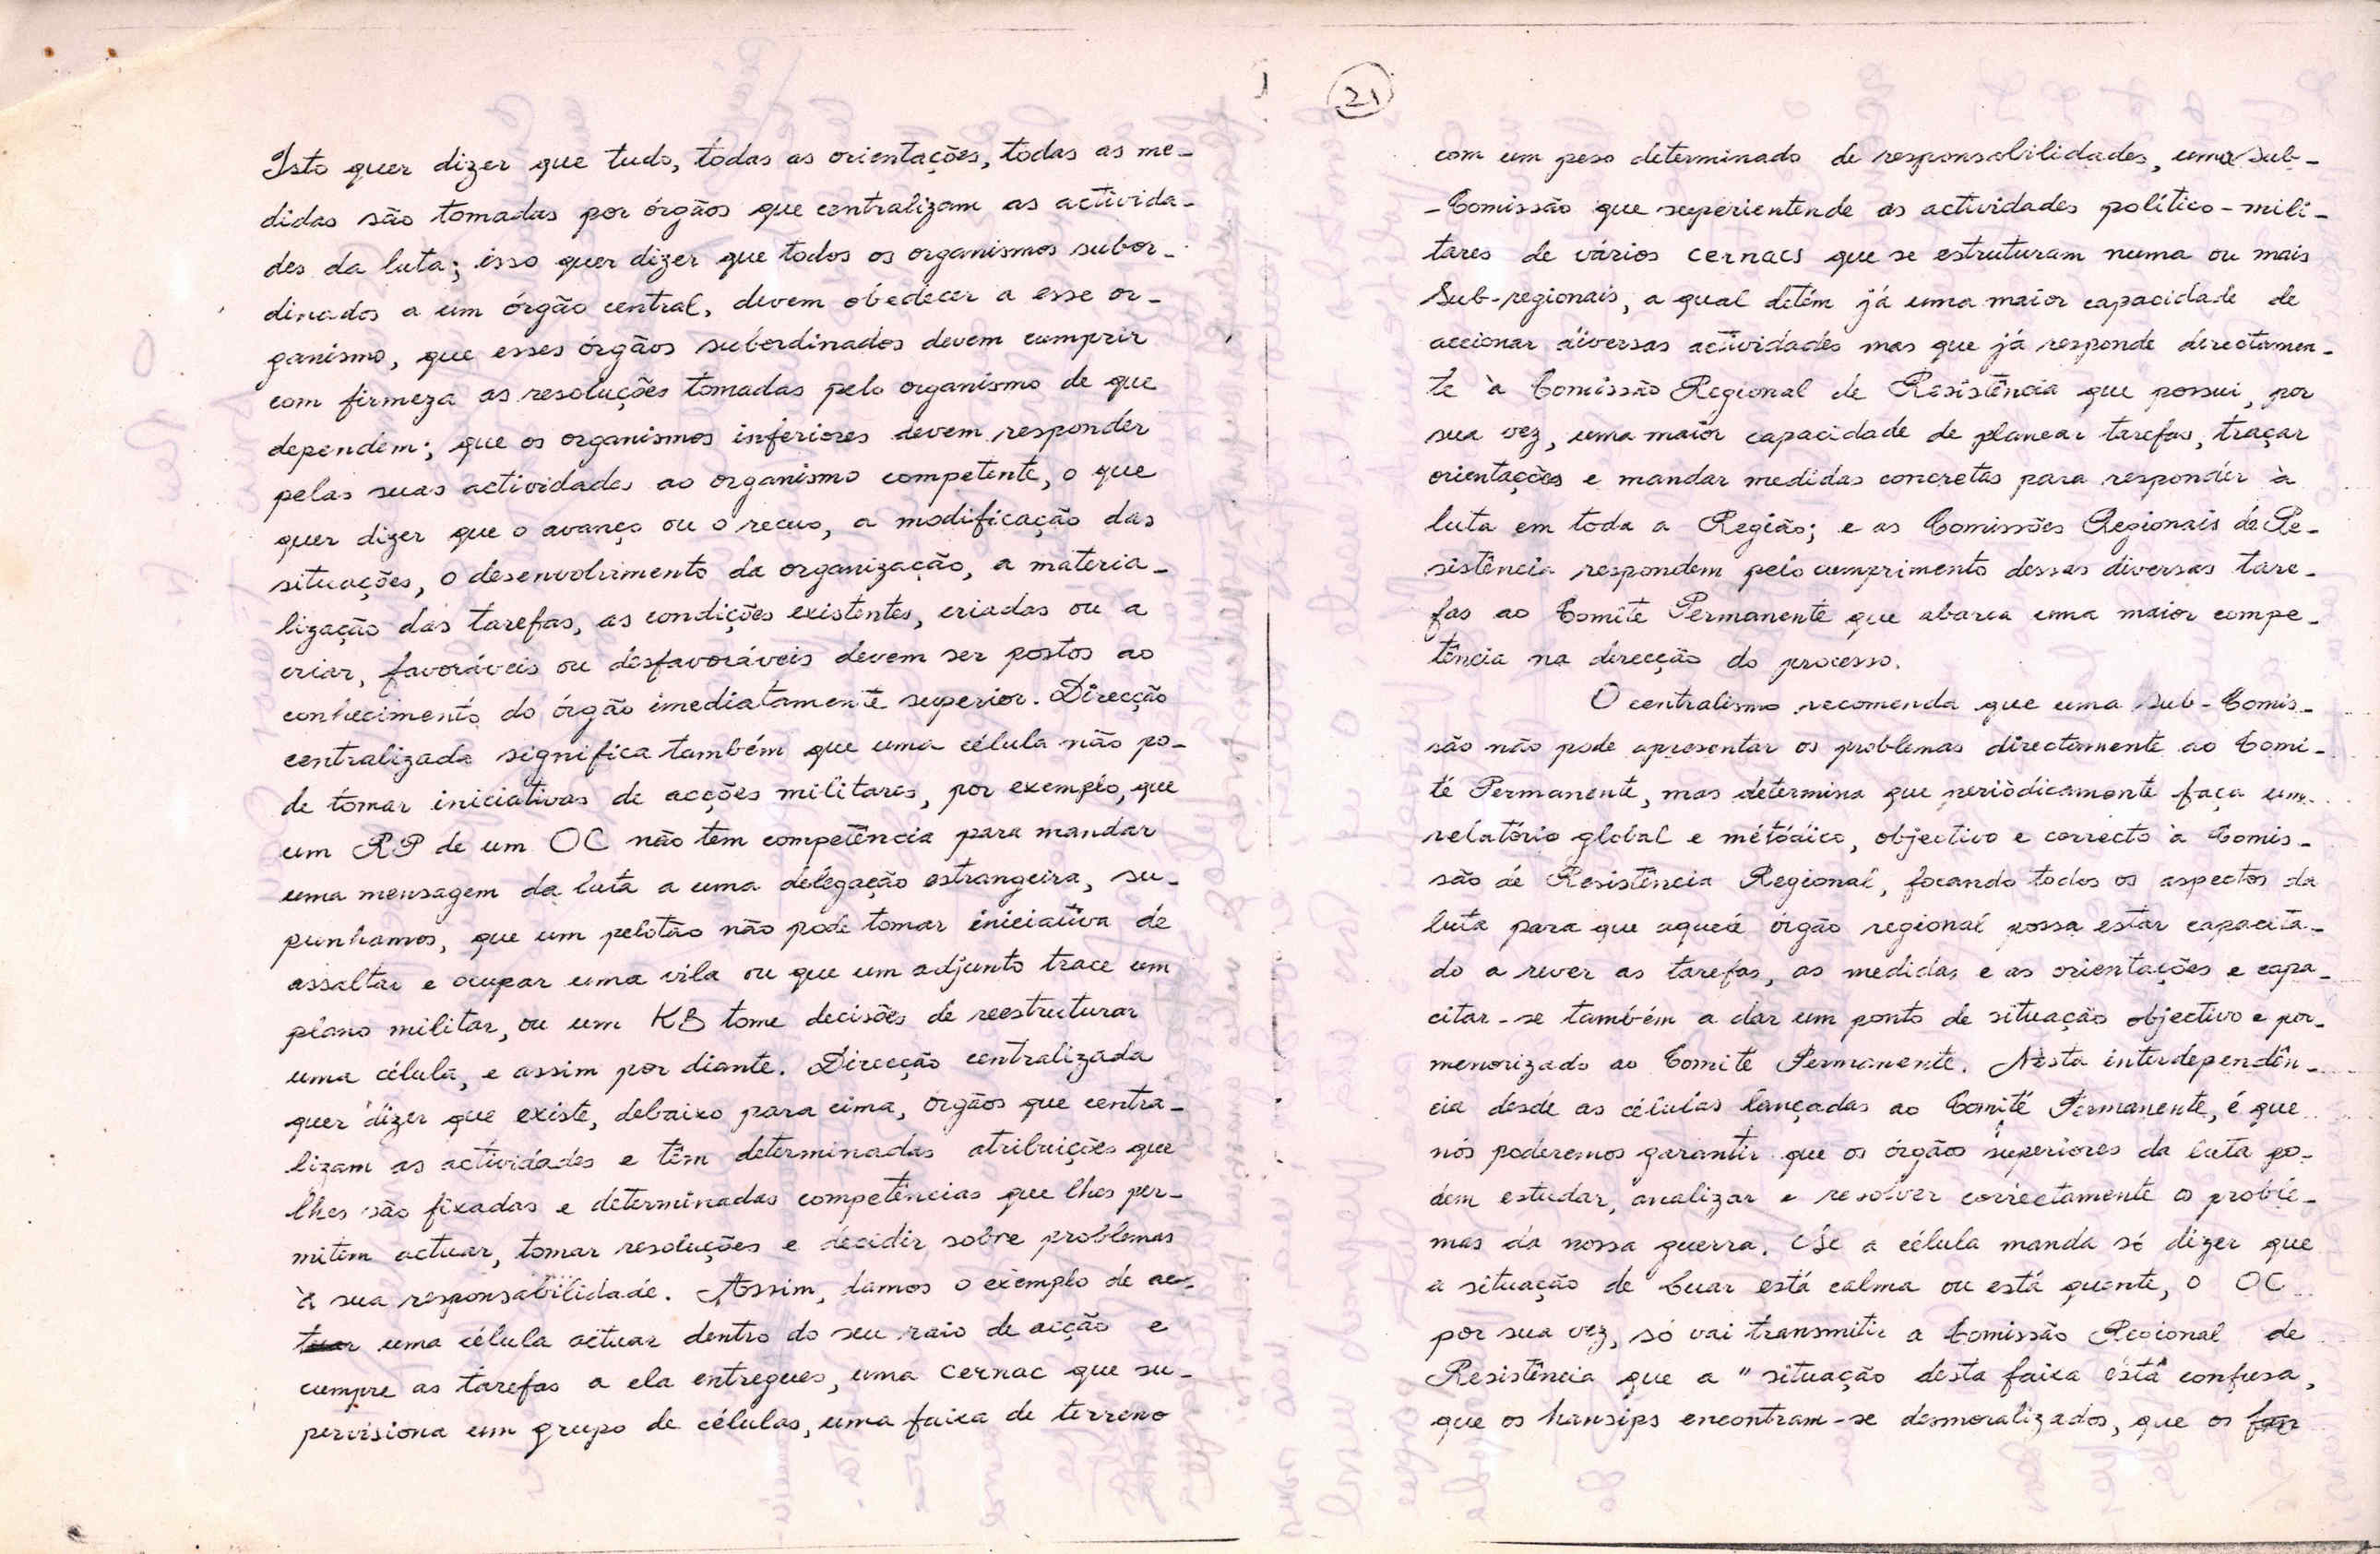 Isto quer dizer que tudo, todas as orientações, todas as me-
didas são tomadas por órgãos que centralizam as activida-
des da luta; isso quer dizer que todos os organismos subor-
dinados a um órgão central, devem obedecer a esse or-
ganismo, que esses órgãos subordinados devem cumprir
com firmeza as resoluções tomadas pelo organismo de que
dependem; que os organismos inferiores devem responder
pelas suas actividades ao organismo competente, o que
quer dizer que o avanço ou o recuo, a modificação das
situações, o desenvolvimento da organização, a materia-
lização das tarefas, as condições existentes, criadas ou a
criar, favoráveis ou desfavoráveis devem ser postos ao
conhecimento do órgão imediatamente superior. Direcção
centralizada significa também que uma célula não po-
de tomar iniciativas de acções militares, por exemplo, que
um RP de um OC não tem competência para mandar
uma mensagem da luta a uma delegação estrangeira, su-
punhamos, que um pelotão não pode tomar iniciativa de
assaltar e ocupar uma vila ou que um adjunto trace um
plano militar, ou um KB tome decisões de reestruturar
uma célula, e assim por diante. Direcção centralizada
quer dizer que existe, debaixo para cima, órgãos que centra-
lizam as actividades e têm determinadas atribuições que
lhes são fixadas e determinadas competências que lhes per-
mitem actuar, tomar resoluções e decidir sobre problemas
à sua responsabilidade. Assim, damos o exemplo de ac-
tuar uma célula actuar dentro do seu raio de acção e
cumpre as tarefas a ela entregues, uma cernac que su-
pervisiona um grupo de células, uma faixa de terreno
21
com um peso determinado de responsabilidades, uma Sub-
-Comissão que superientende as actividades político-mili-
tares de vários cernacs que se estruturam numa ou mais
Sub-regionais, a qual detém já uma maior capacidade de
accionar diversas actividades mas que já responde directamen-
te à Comissão Regional de Resistência que possui, por
sua vez, uma maior capacidade de planear tarefas, traçar
orientações e mandar medidas concretas para responder à
luta em toda a Região; e as Comissões Regionais de Re-
sistência respondem pelo cumprimento dessas diversas tare-
fas ao Comité Permanente que abarca uma maior compe-
tência na direcção do processo.
O centralismo recomenda que uma Sub-Comis-
são não pode apresentar os problemas directamente ao Comi-
té Permanente, mas determina que periòdicamente faça um
relatório global e metódico, objectivo e correcto à Comis-
são de Resistência Regional, focando todos os aspectos da
luta para que aquele órgão regional possa estar capacita-
do a rever as tarefas, as medidas e as orientações e capa-
citar-se também a dar um ponto de situação objectivo e por-
menorizado ao Comité Permanente. Nesta interdependên-
cia desde as células lançadas ao Comité Permanente, é que
nós poderemos garantir que os órgãos superiores da luta po-
dem estudar, analizar e resolver correctamente os proble-
mas da nossa guerra. Se a célula manda só dizer que
a situação de Luar está calma ou está quente, o OC
por sua vez, só vai transmitir a Comissão Regional de
Resistência que a "situação desta faixa está confusa,
que os hansips encontram-se desmoralizados, que os